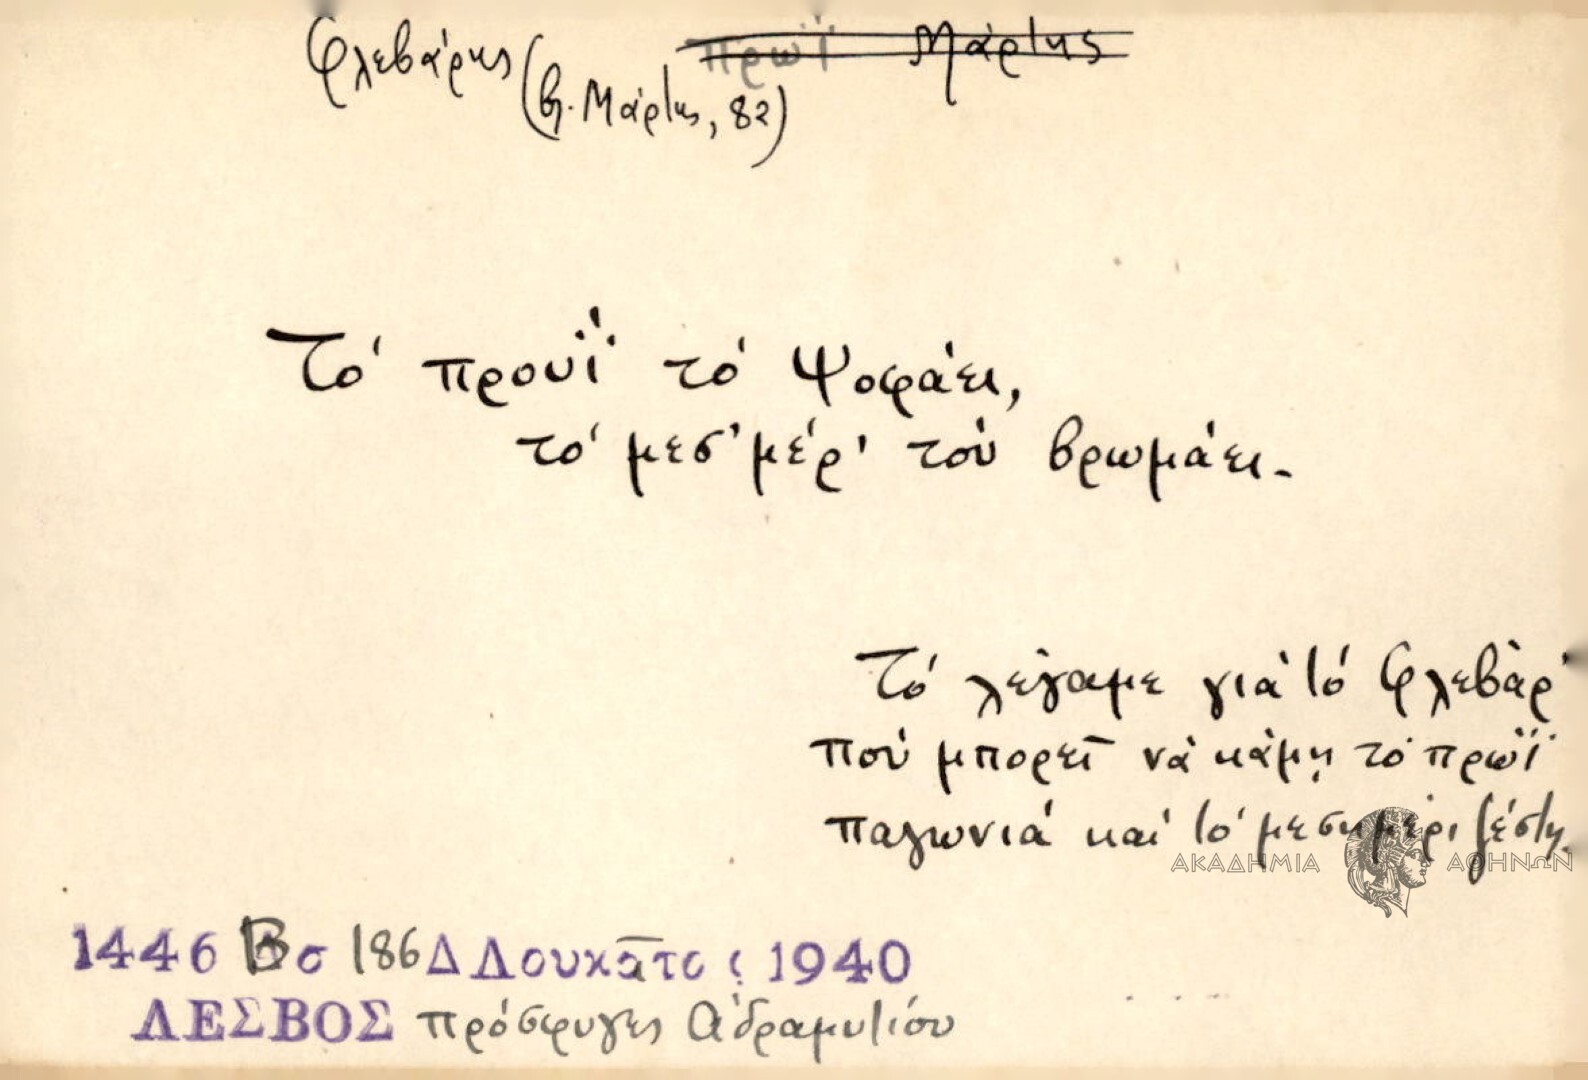 Φλεβάρης ~~πρωΐ Μάρτης~~
(βλ. Μάρτης, 82)
Τό προυΐ τό ψοφάει,
τό μεσ'μέρ' τού βρωμάει.
Τό λέγαμε γιά τό Φλεβάρ'
πού μπορεῖ νά κάμῃ τό πρωΐ
παγωνιά καί τό μεσημέρι ζέστη.
ΑΚΑΔΗΜΙΑ ΑΘΗΝΩΝ
1446 Β σ 186 Δ Λουκᾶτος 1940
ΛΕΣΒΟΣ πρόσφυγες Ἀδραμυτίου